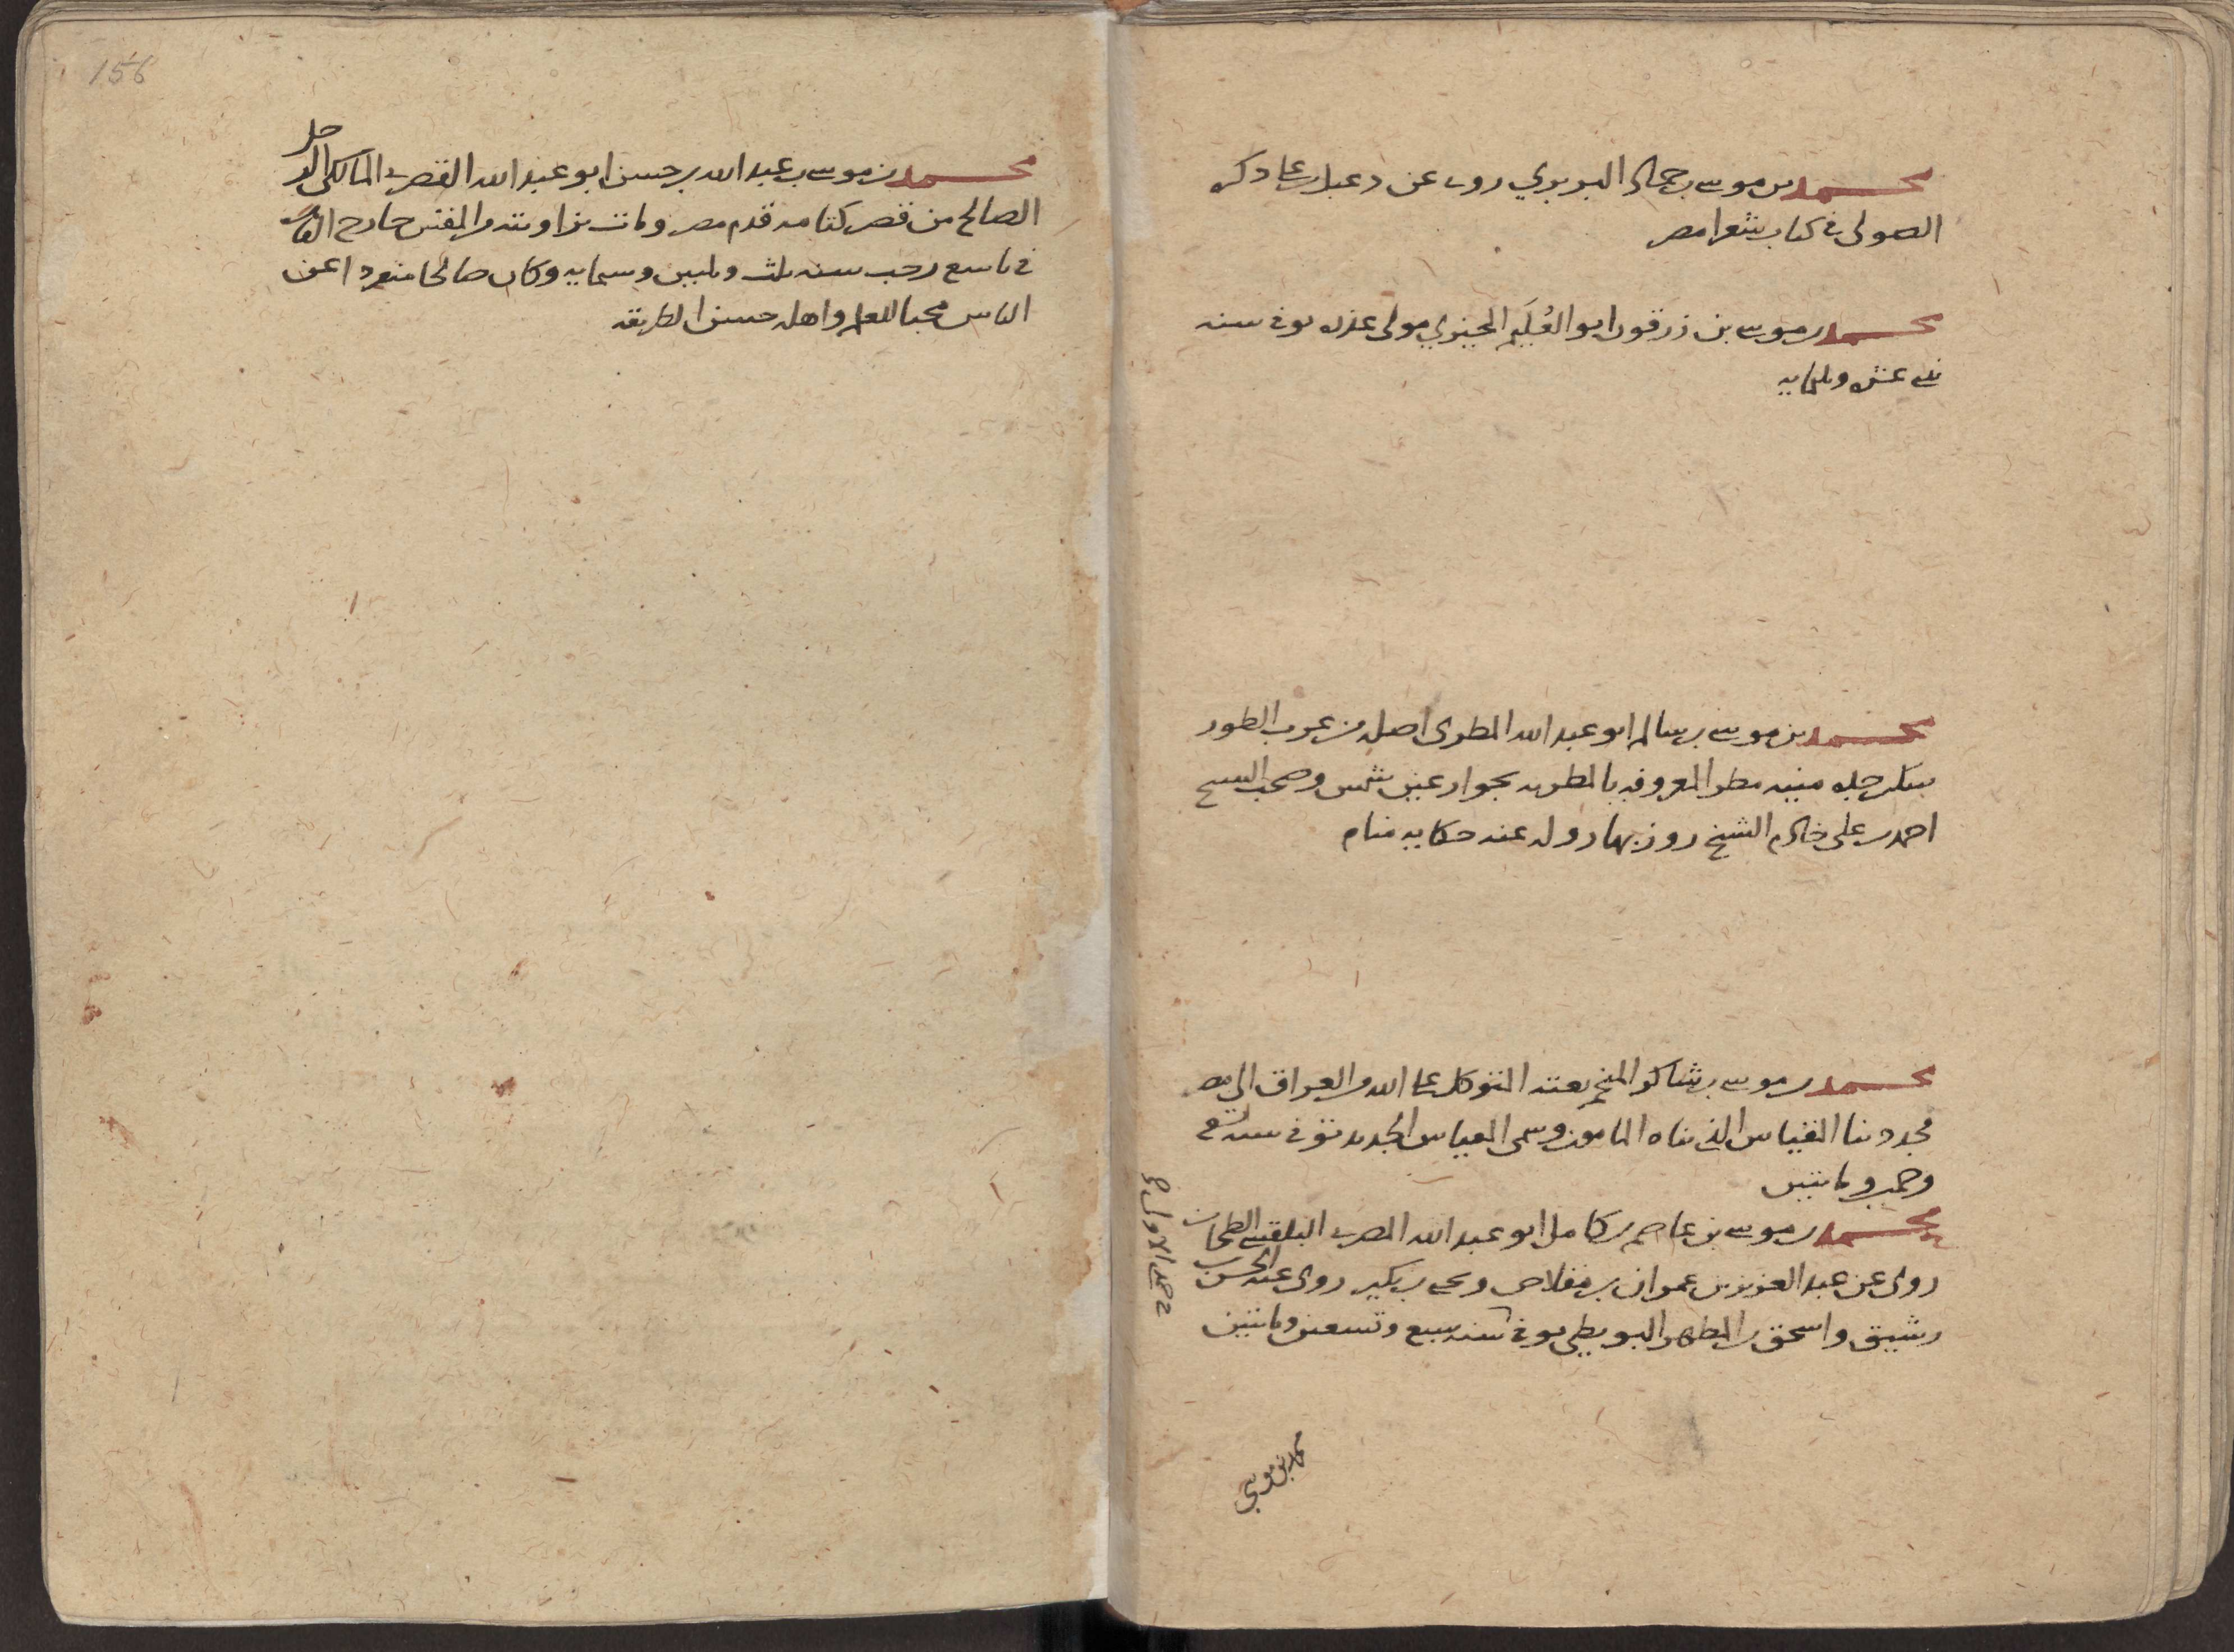 محمد بن موسى بن حماد البربري روى عن دعبل بن على ذكره
الصولى في كتاب شعرا مصر
محمد بن موسى بن زرقون ابو العُلَيم الجيزي مولى عنزه توفى سنه
عشره وثلثمايه
محمد بن موسى بن سالم ابو عبد الله المطرى اصله من عرب الطور
سكن جده منيه مطر المعروفه بالمطريه بجوار عين شمس وصحب الشيخ
احمد بن على خادم الشيخ روزبهار وله عنه حكايه منام
محمد بن موسى بن شاكر المنجم بعثه المتوكل على الله من العراق الى مصر
فجدد بنا المقياس الذى بناه المامون وسمى المقياس الجديد توفى سنه تسع
وخمسين وماتين
محمد بن موسى بن عاصم بن كامل ابو عبد الله المصرى الطحان
روى عن عبد العزيز بن عمران بن مقلاص ويحيى بن بكير روى عنه الحسن بن
رشيق واسحق بن المطهر البويطى توفى سنه سبع وتسعين وماتين
محمد بن موسى
156
محمد بن موسى بن عبد الله بن حسن ابو عبد الله القصرى المالكى الرجل
الصالح من قصر كتامه قدم مصر ومات بزاويته من المقس خارج القاهره
في تاسع رجب سنه ثلث وثلثين وسبعمايه وكان صالحا منفردا عن
الناس محبا للعلم واهله حسن الطريقه